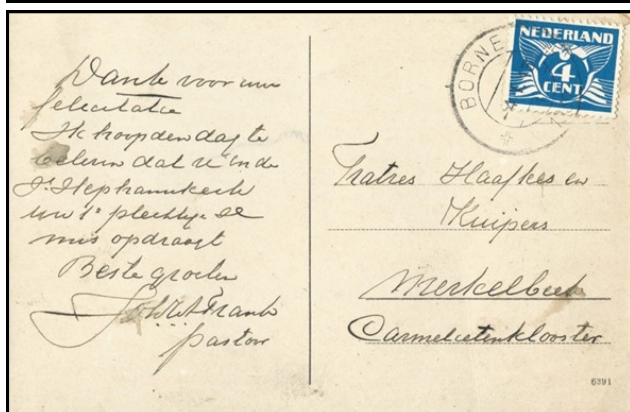 Dank voor uw
felicitatie
Ik hoop den dag te
beleven dat u in de
St. Stephanuskerk
uw 1e plechtige H.
mis opdraagt
Beste groeten
pastoor
BORNE
NEDERLAND
4
CENT
Fratres Haafkes en
Kuipers
Merkelbeek
Carmelietenklooster
6391